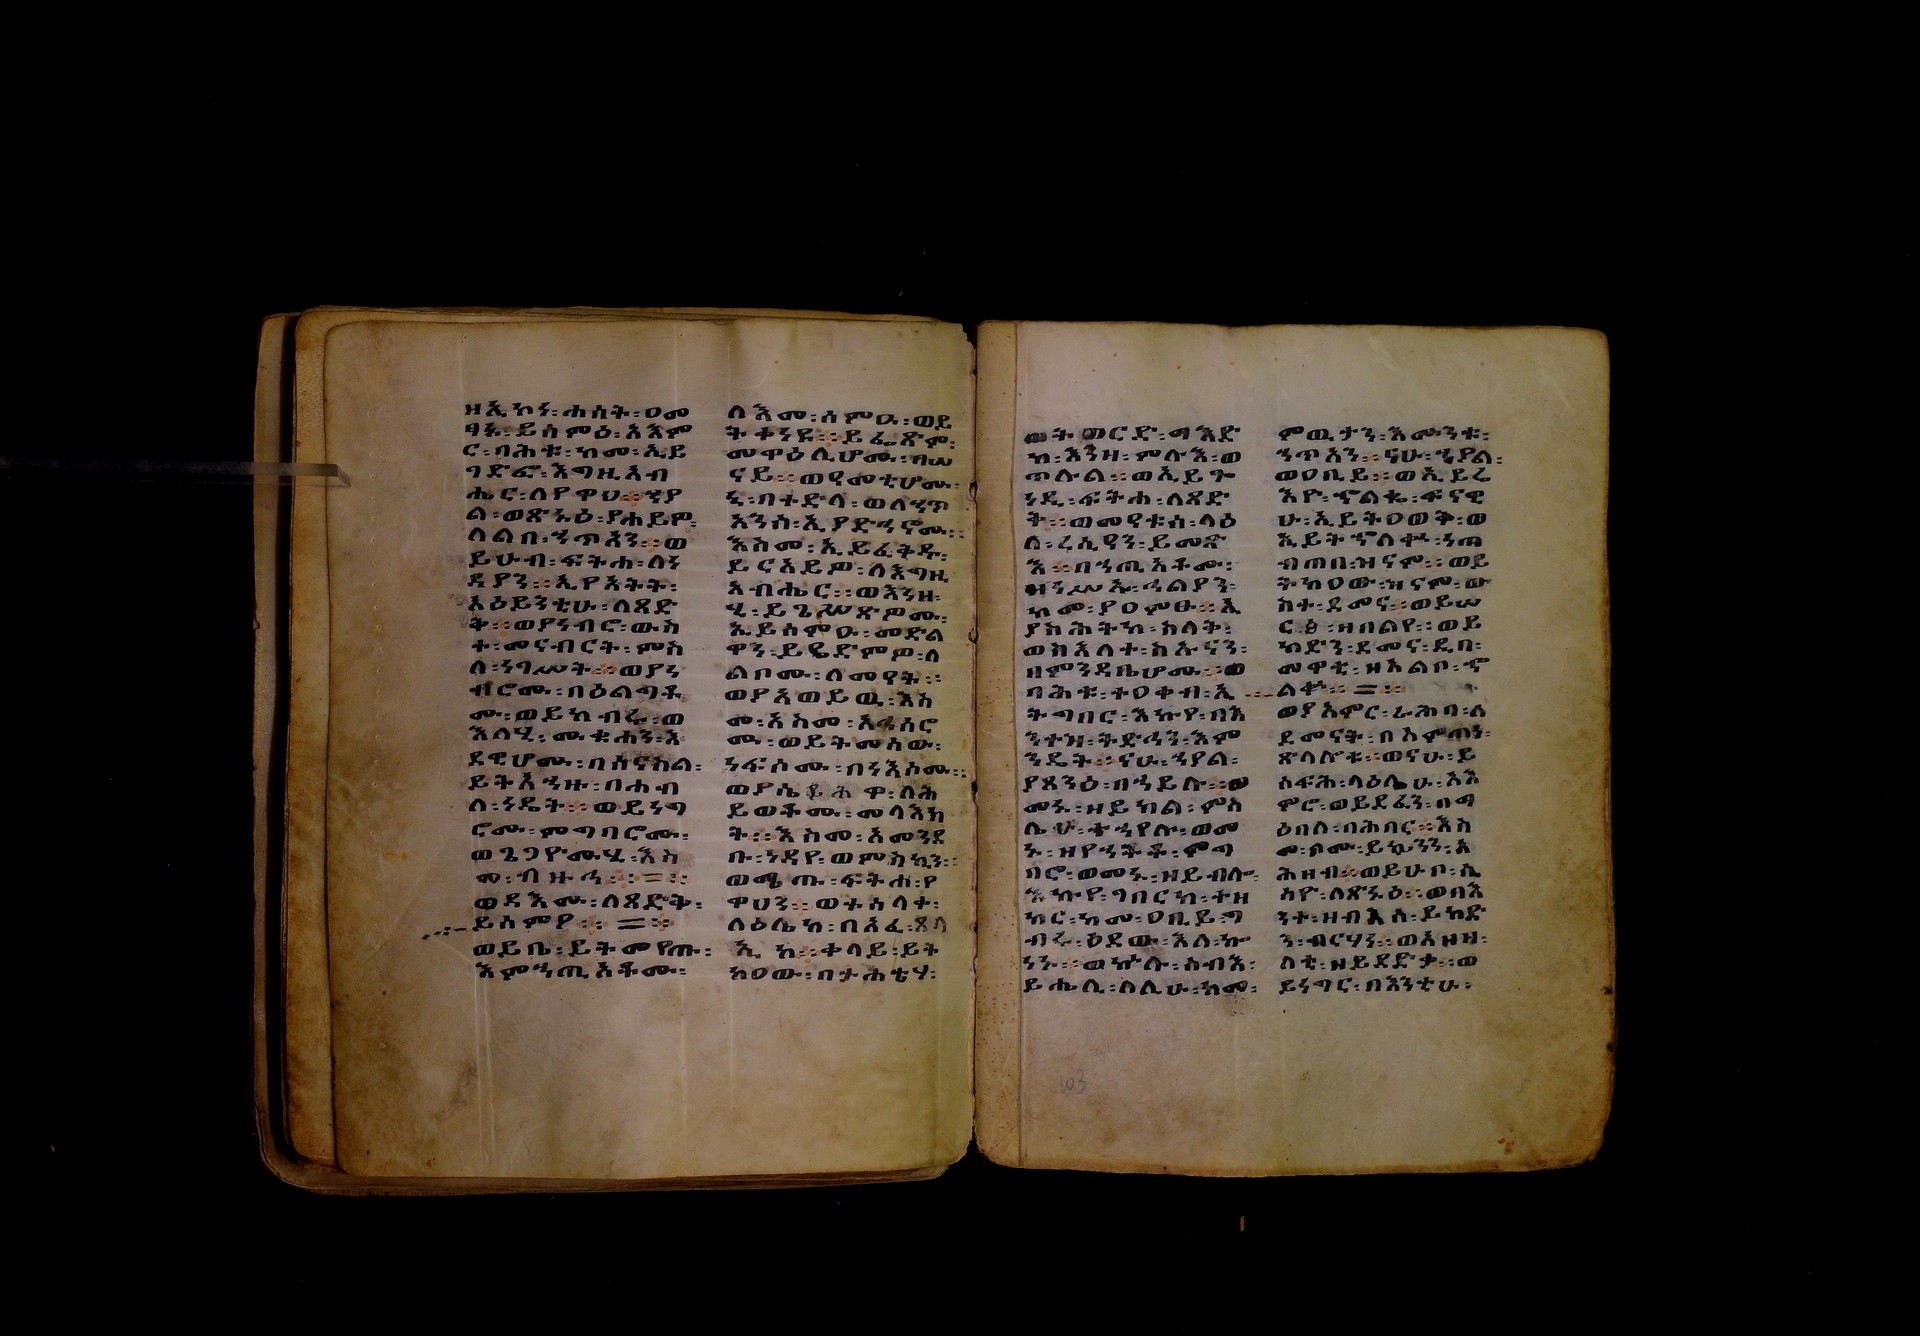 ዘኢኮነ፡ሐሰት፡ዐመ
ፃኑ፡ይሰምዕ፡አእም
ር፡ባሕቱ፡ከመ፡ኢይ
ገድፎ፡እግዚአብ
ሔር፡ለየዋህ።ኀያ
ል፡ወጽኑዕ፡
ለልበ፡ኀጥአን።ወ
ይሁብ፡ፍትሐ፡ለነ
ዳያን።ኢየአትት፡
አዕይንቲሁ፡ለጻድ
ቅ።ወያነብሮ፡ውስ
ተ፡መናብርት፡ምስ
ለ፡ነገሥት።ወያነ
ብሮሙ፡በዕልግቶ
ሙ፡ወይከብሩ፡ወ
እለሂ፡ሙቁሐን፡እ
ደዊሆሙ፡በሰናስል፡
ይትአኀዙ፡በሐብ
ለ፡ንዴት።ወይነግ
ሮሙ፡ምግባሮሙ፡
ወጌጋዮሙሂ፡እስ
መ፡ብዙኅ።
ወዳእሙ፡ለጻድቅ፡
ይሰምዖ።
ወይቤ፡ይትመየጡ፡
እምኀጢአቶሙ፡
ለእመ፡ሰምዑ፡ወይ
ትቀንዩ።ይፌጽሙ፡
መዋዕሊሆሙ፡በሠ
ናይ።ወዓመቲሆሙ፡
ኒ፡በተድላ፡ወለኃጥ
አንሰ፡ኢያድኅኖሙ።
እስመ፡ኢይፈቅዱ፡
ያርእይዎ፡ለእግዚ
አብሔር።ወእንዘ፡
ሂ፡ይጌሥጽዎሙ፡
ኢይሰምዑ፡መድል
ዋን፡ይዌድምዎ፡ለ
ልቦሙ፡ለመዓት።
እስ
መ፡አስመ፡አኅሰሮ
ሙ፡ወይትመሰው፡
ነፍሶሙ፡በንእሶሙ።
ይወቶሙ፡መላእክ
ት።እስመ፡አመንደ
ቡ፡ነዳየ፡ወምስኪነ።
ፍትሐ፡የ
ዋህን።ወተሰላተ፡
ላዕሌከ፡በአፈ፡ጸላ
ኢከ፡ቀላይ፡ይት
ከዐው፡በታሕቴሃ፡
ወትወርድ፡ማእድ
ከ፡እንዘ፡ምሉእ፡ወ
ጥሉል።ወኢይጐ
ነዲ፡ፍትሐ፡ለጻድ
ቅ።ወመዓቱሰ፡ላዕ
ለ፡ረሲዓን፡ይመጽ
እ።በኀጢአቶሙ፡
ኀልያን፡
ከመ፡ያዐምፁ።ኢ
ያስሕትከ፡ከላት፡
ባሕቱ፡ተዐቀብ፡ኢ
ትግበር፡እኩየ፡በእ
ንተዝ፡ትድኅን፡እም
ንዴት።ናሁ፡ኀያል፡
ያጸንዕ፡በኀይሉ።ወ
መኑ፡ዘይክል፡ምስ
ሌሁ፡ትኀየሉ፡ወመ
ኑ፡ዘየኀትቶ፡ምግ
ባሮ፡ወመኑ፡ዘይብሎ፡
እኩየ፡ገበርከ፡ተዘ
ከር፡ከመ፡ዐቢይ፡ግ
ብሩ፡ዕደው፡እለ፡ኰ
ነኑ።ወኵሉ፡ሰብእ፡
ይሔሊ፡ለሊሁ፡ከመ፡
ምዉታን፡እሙንቱ፡
ኀጥአን።ናሁ፡ኀያል፡
ወዐቢይ።ወኢይረ
እዮ፡ኍልቈ፡ፍናዊ
ሁ፡ኢይትዐወቅ፡ወ
ኢይትኌለቍ፡ነጠ
ብጠበ፡ዝናም።ወይ
ትከዐው፡ዝናም፡ው
ስተ፡ደመና።ወይሠ
ርፅ፡ዘበልየ።ወይ
ከድን፡ደመና፡ዲበ፡
መዋቲ፡ዘአልቦ፡ኍ
ልቍ።
ወያአምር፡ራሕበ፡ለ
ደመናት፡በአምጣነ፡
ጽላሎቱ።ወናሁ፡ይ
ሰፍሕ፡ላዕሌሁ፡
በግ
ዕበለ፡ባሕር።እስ
መ፡ቦሙ፡ይኴንን፡አ
ሕዛብ።ወይሁቦ፡ሲ
ሳዮ፡ለጽኑዕ።ወበእ
ንተ፡ዘብእሰ፡ይከድ
ን፡ብርሃነ።ወአዘዘ፡
ለቲ፡ዘይደድቃ።ወ
ይነግር፡በእንቲሁ፡